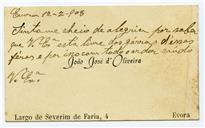 Evora 12-2-908
Sinto-me cheio de alegria por saber
que V. Exª está livre das garras d'essas
feras e por isso com todo o ardor saúdo
V. Exª.
João José d'Oliveira
Largo de Severim de Faria, 4 Evora